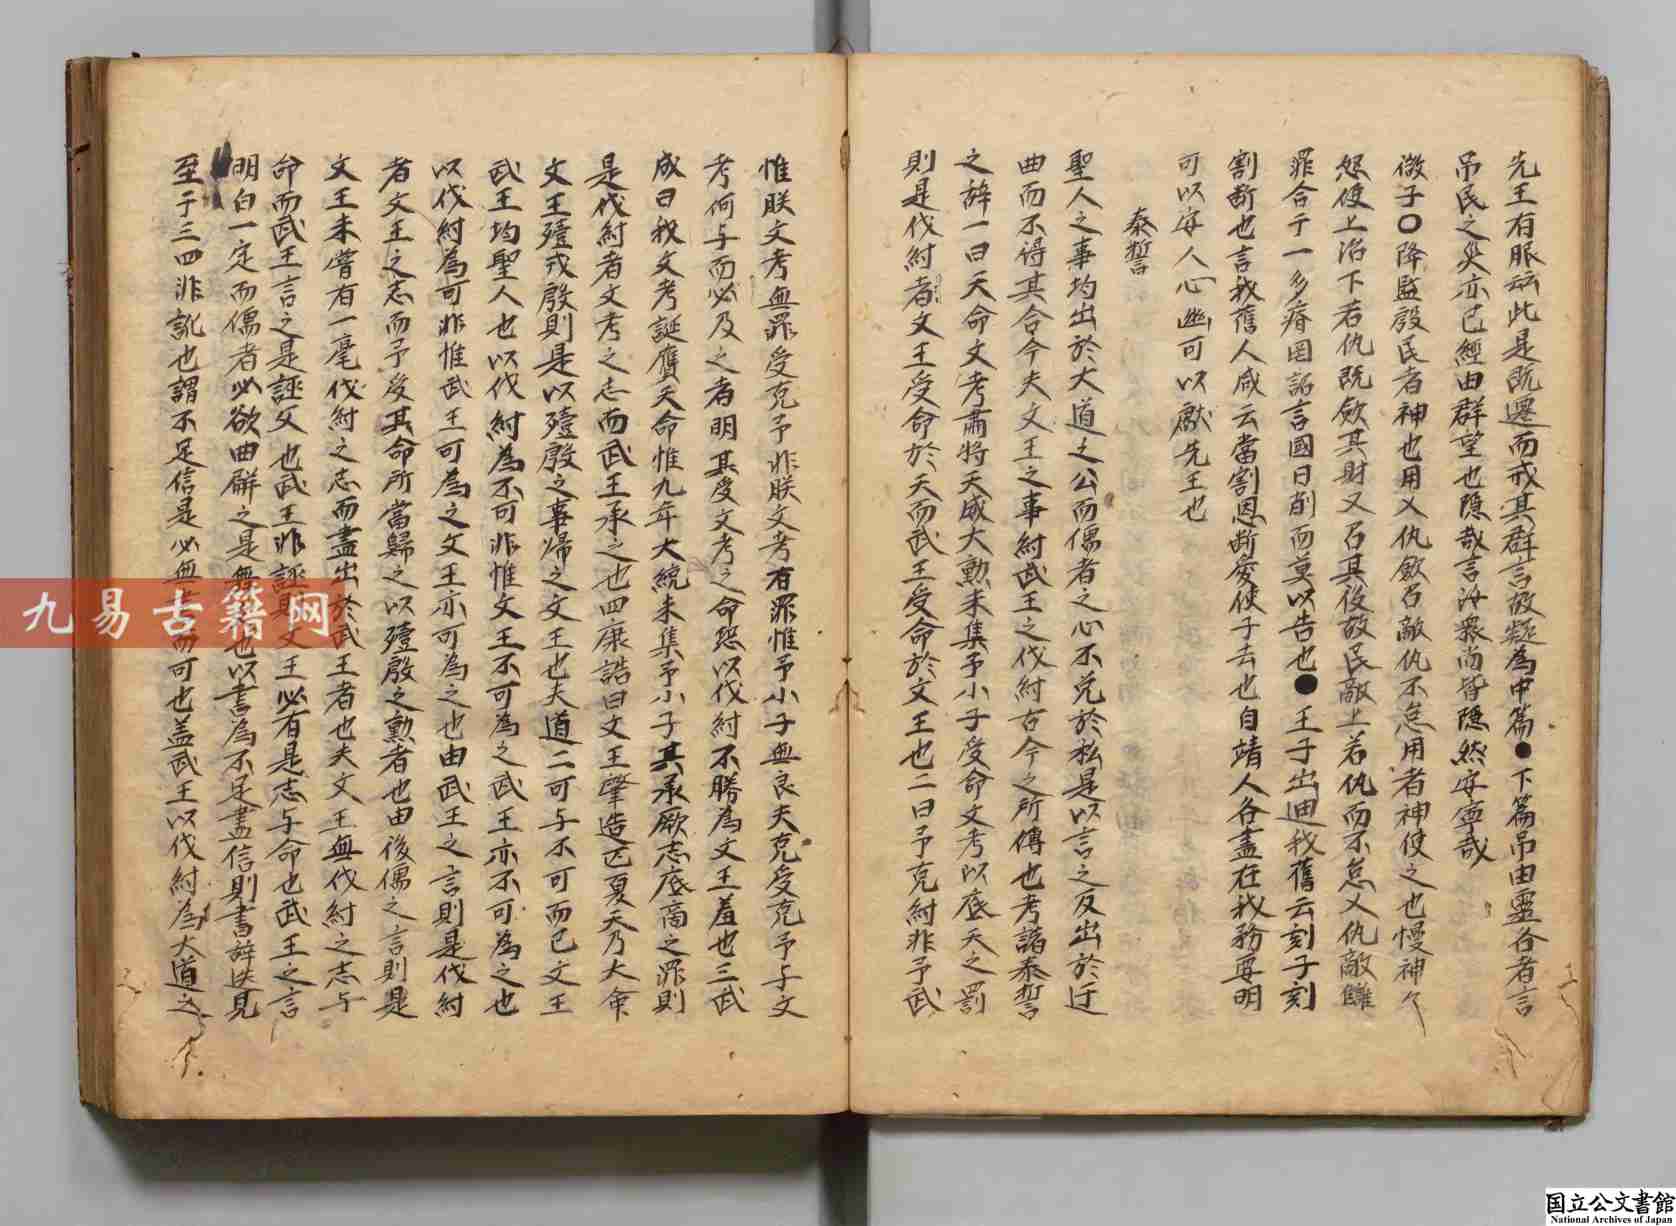 先王有服云此是既遷而戒其群言故疑為中篇●下篇吊由靈各者言
吊民之災亦已經由群望也隐哉言汝衆尚皆隐然安寧哉
微子〇降監殷民者神也用乂仇斂召敵仇不怠用者神使之也慢神々
怨使上治下若仇既斂其財又召其役故民敵上若仇而不怠乂仇敵讎
罪合于一多瘠罔詔言國日削而莫以告也●王子出迪我舊云刻子刻
割断也言我舊人咸云當割恩断爱使子去也自靖人各盡在我務要明
可以安人心幽可以獻先王也
泰誓
聖人之事均出於大道之公而儒者之心不免於私是以言之反出於迂
曲而不得其合今夫文王之事紂武王之伐紂古今之所傳也考諸泰誓
之辞一曰天命文考肅将天威大勳未集予小子受命文考以底天之罰
則是伐紂者文王受命於天而武王受命於文王也二曰予克紂非予武
惟朕文考無罪受克予非朕文考有罪惟予小子無良夫克受克予与文
考何与而必及之者明其受文考之命恐以伐紂不勝為文王羞也三武
成曰我文考誕膺天命惟九年大統未集予小子其承厥志底商之罪則
是伐紂者文考之志而武王承之也四康誥曰文王肇造區夏天乃大命
文王殪戎殷則是以殪殷之事帰之文王也夫道二可与不可而已文王
武王均聖人也以伐紂為不可非惟文王不可為之武王亦不可為之也
以伐紂為可非惟武王可為之文王亦可為之也由武王之言則是伐紂
者文王之志而予受其命所當歸之以殪殷之勲者也由後儒之言則是
文王未嘗有一毫伐紂之志而盡出於武王者也夫文王無伐紂之志与
命而武王言之是誣父也武王非誣其父文王必有是志与命也武王之言
明白一定而儒者必欲曲辟之是無也以書為不足盡信則書辞迭見
至于三四非訛也謂不足信是必無書而可也盖武王以伐紂為大道之
九易古籍网
国立公文書館
National Archives of Japan